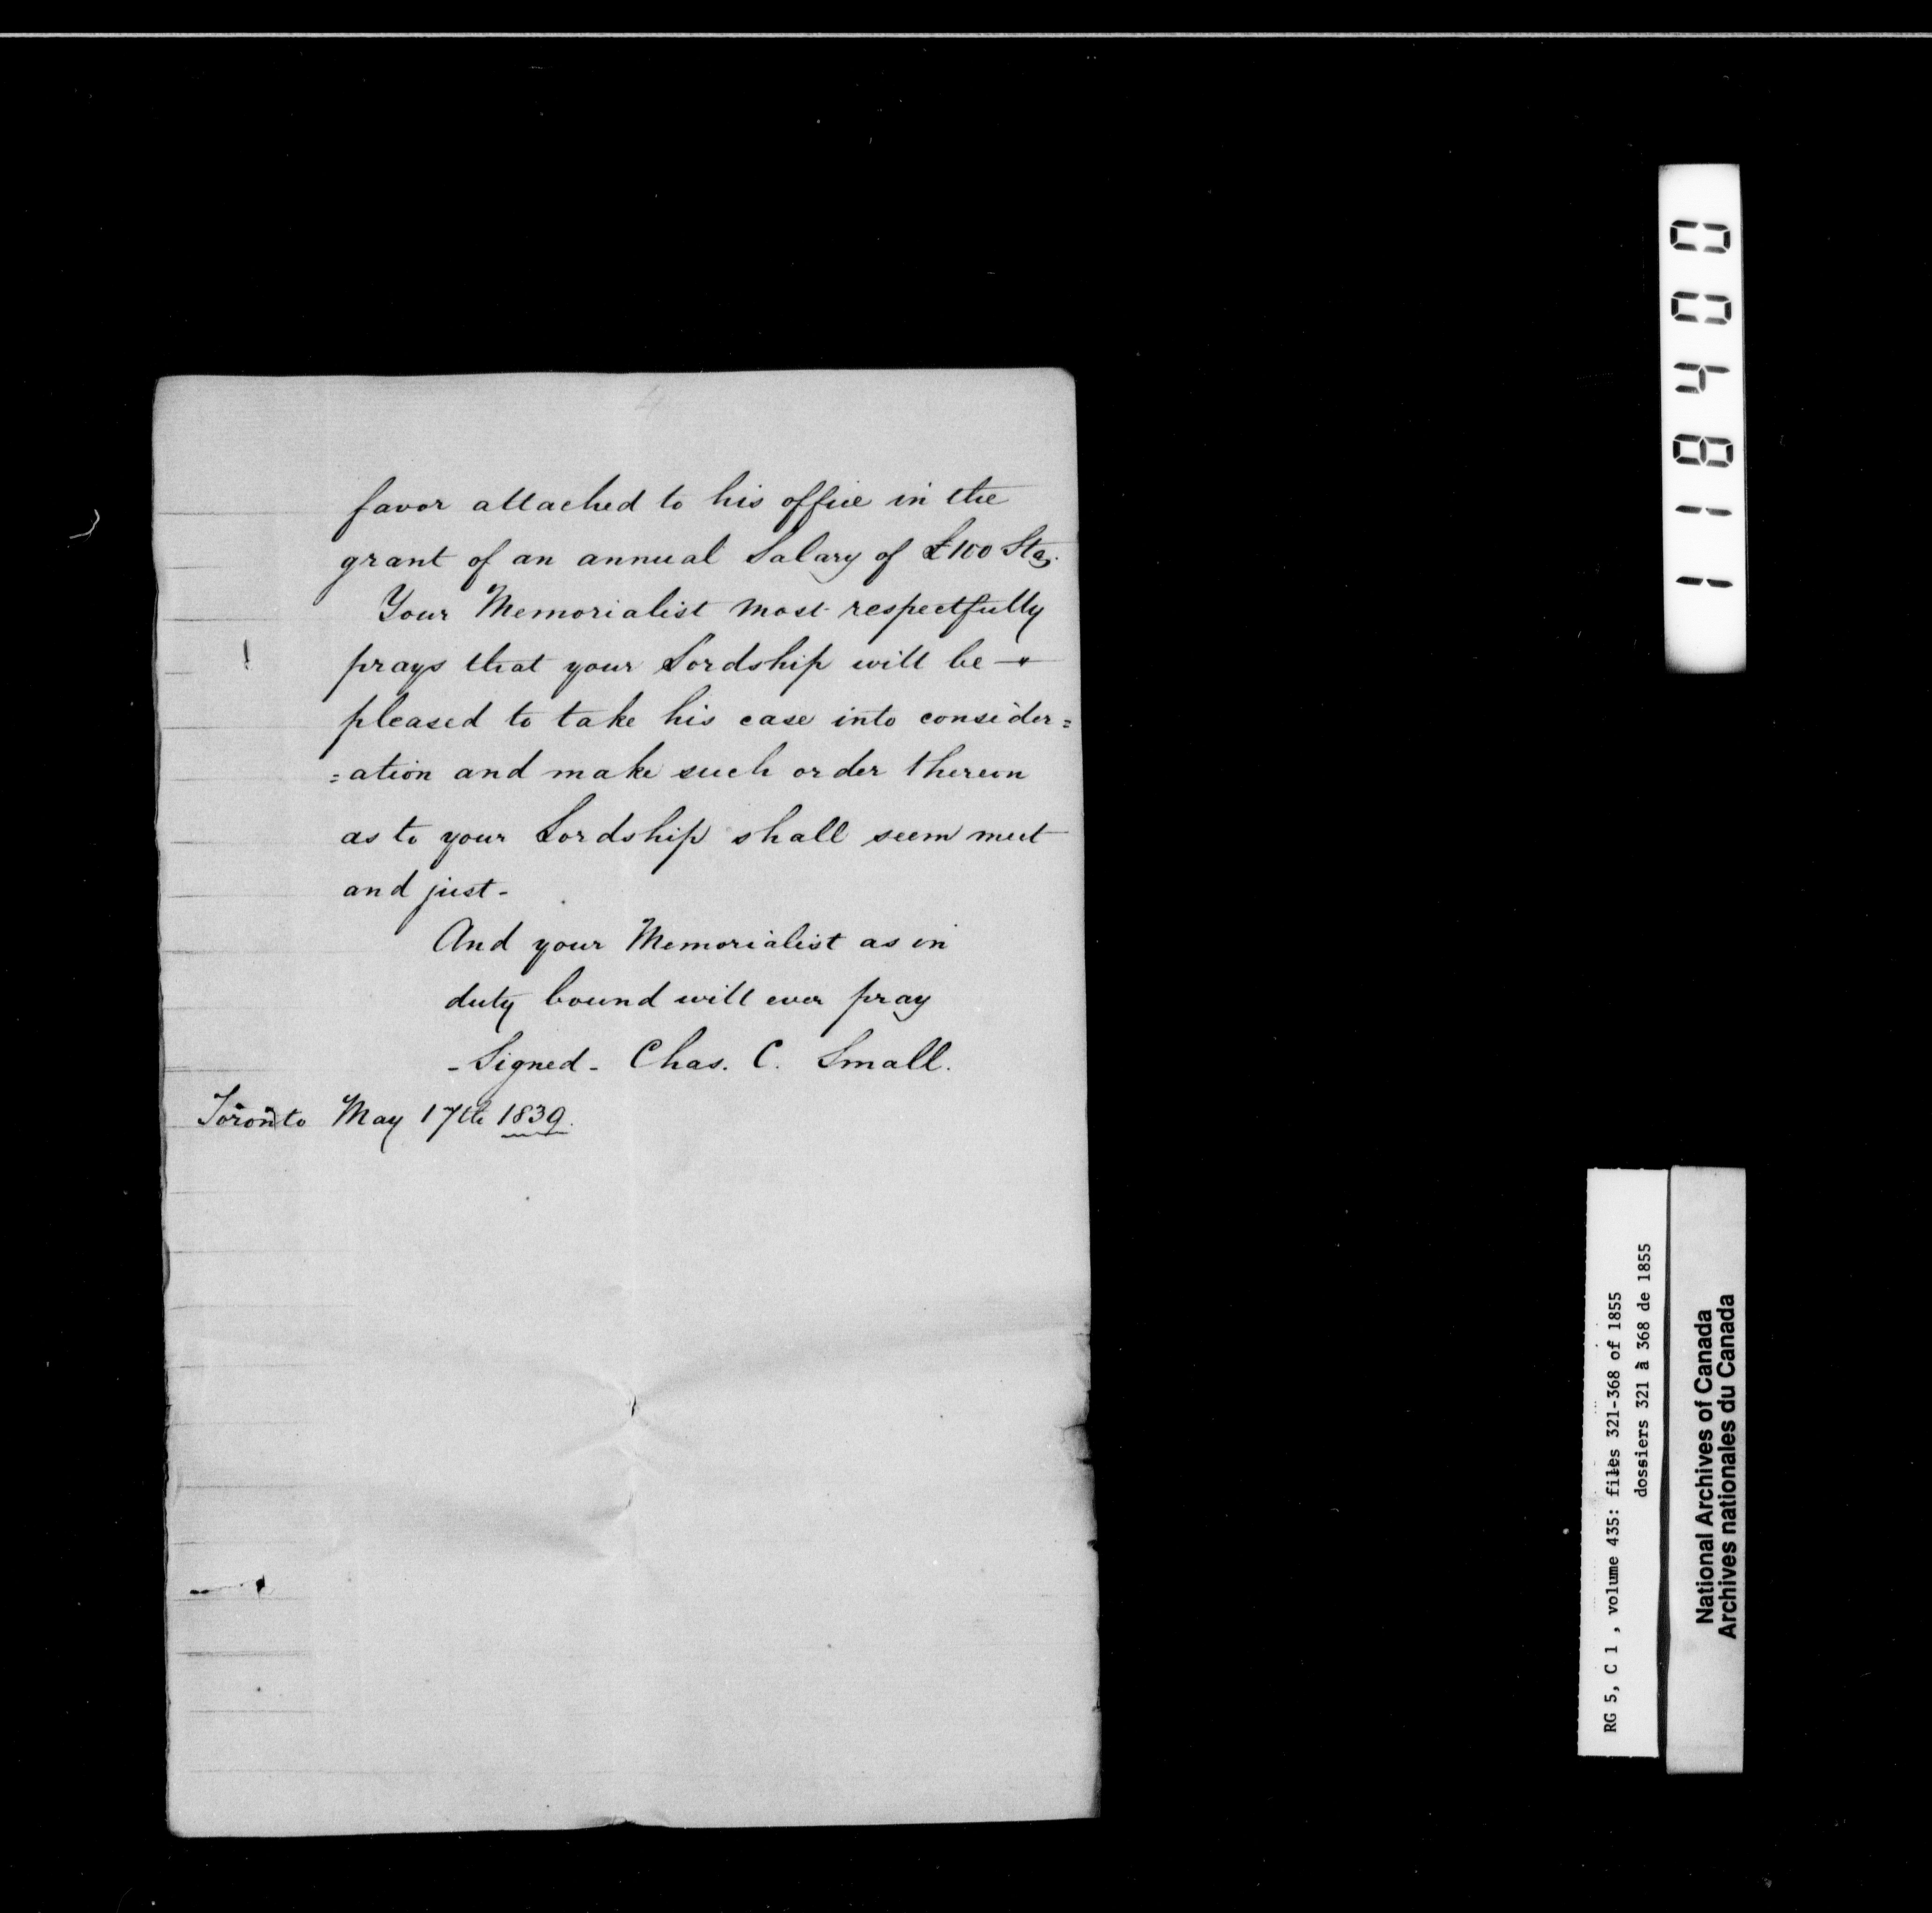 4
favor attached to his office in the
grant of an annual Salary of £100 Stg.
Your Memorialist most respectfully
prays that your Lordship will be
pleased to take his case into consider=
=ation and make such order thereon
as to your Lordship shall seem meet
and just-
And your Memorialist as in
duty bound will ever pray
- Signed - Chas. C. Small.
Toronto May 17th 1839.
004811
RG 5, C 1 , volume 435: files 321-368 of 1855
dossiers 321 à 368 de 1855
National Archives of Canada
Archives nationales du Canada